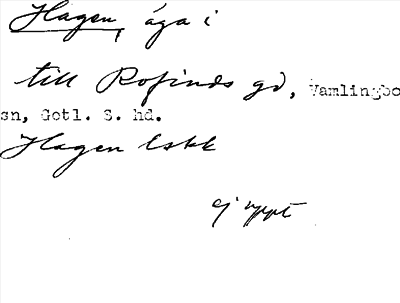 Hagen, äga i
till Rofinds gd, Vamlingbo
sn, Gotl. S. hd.
Hagen Eskk
ej uppt